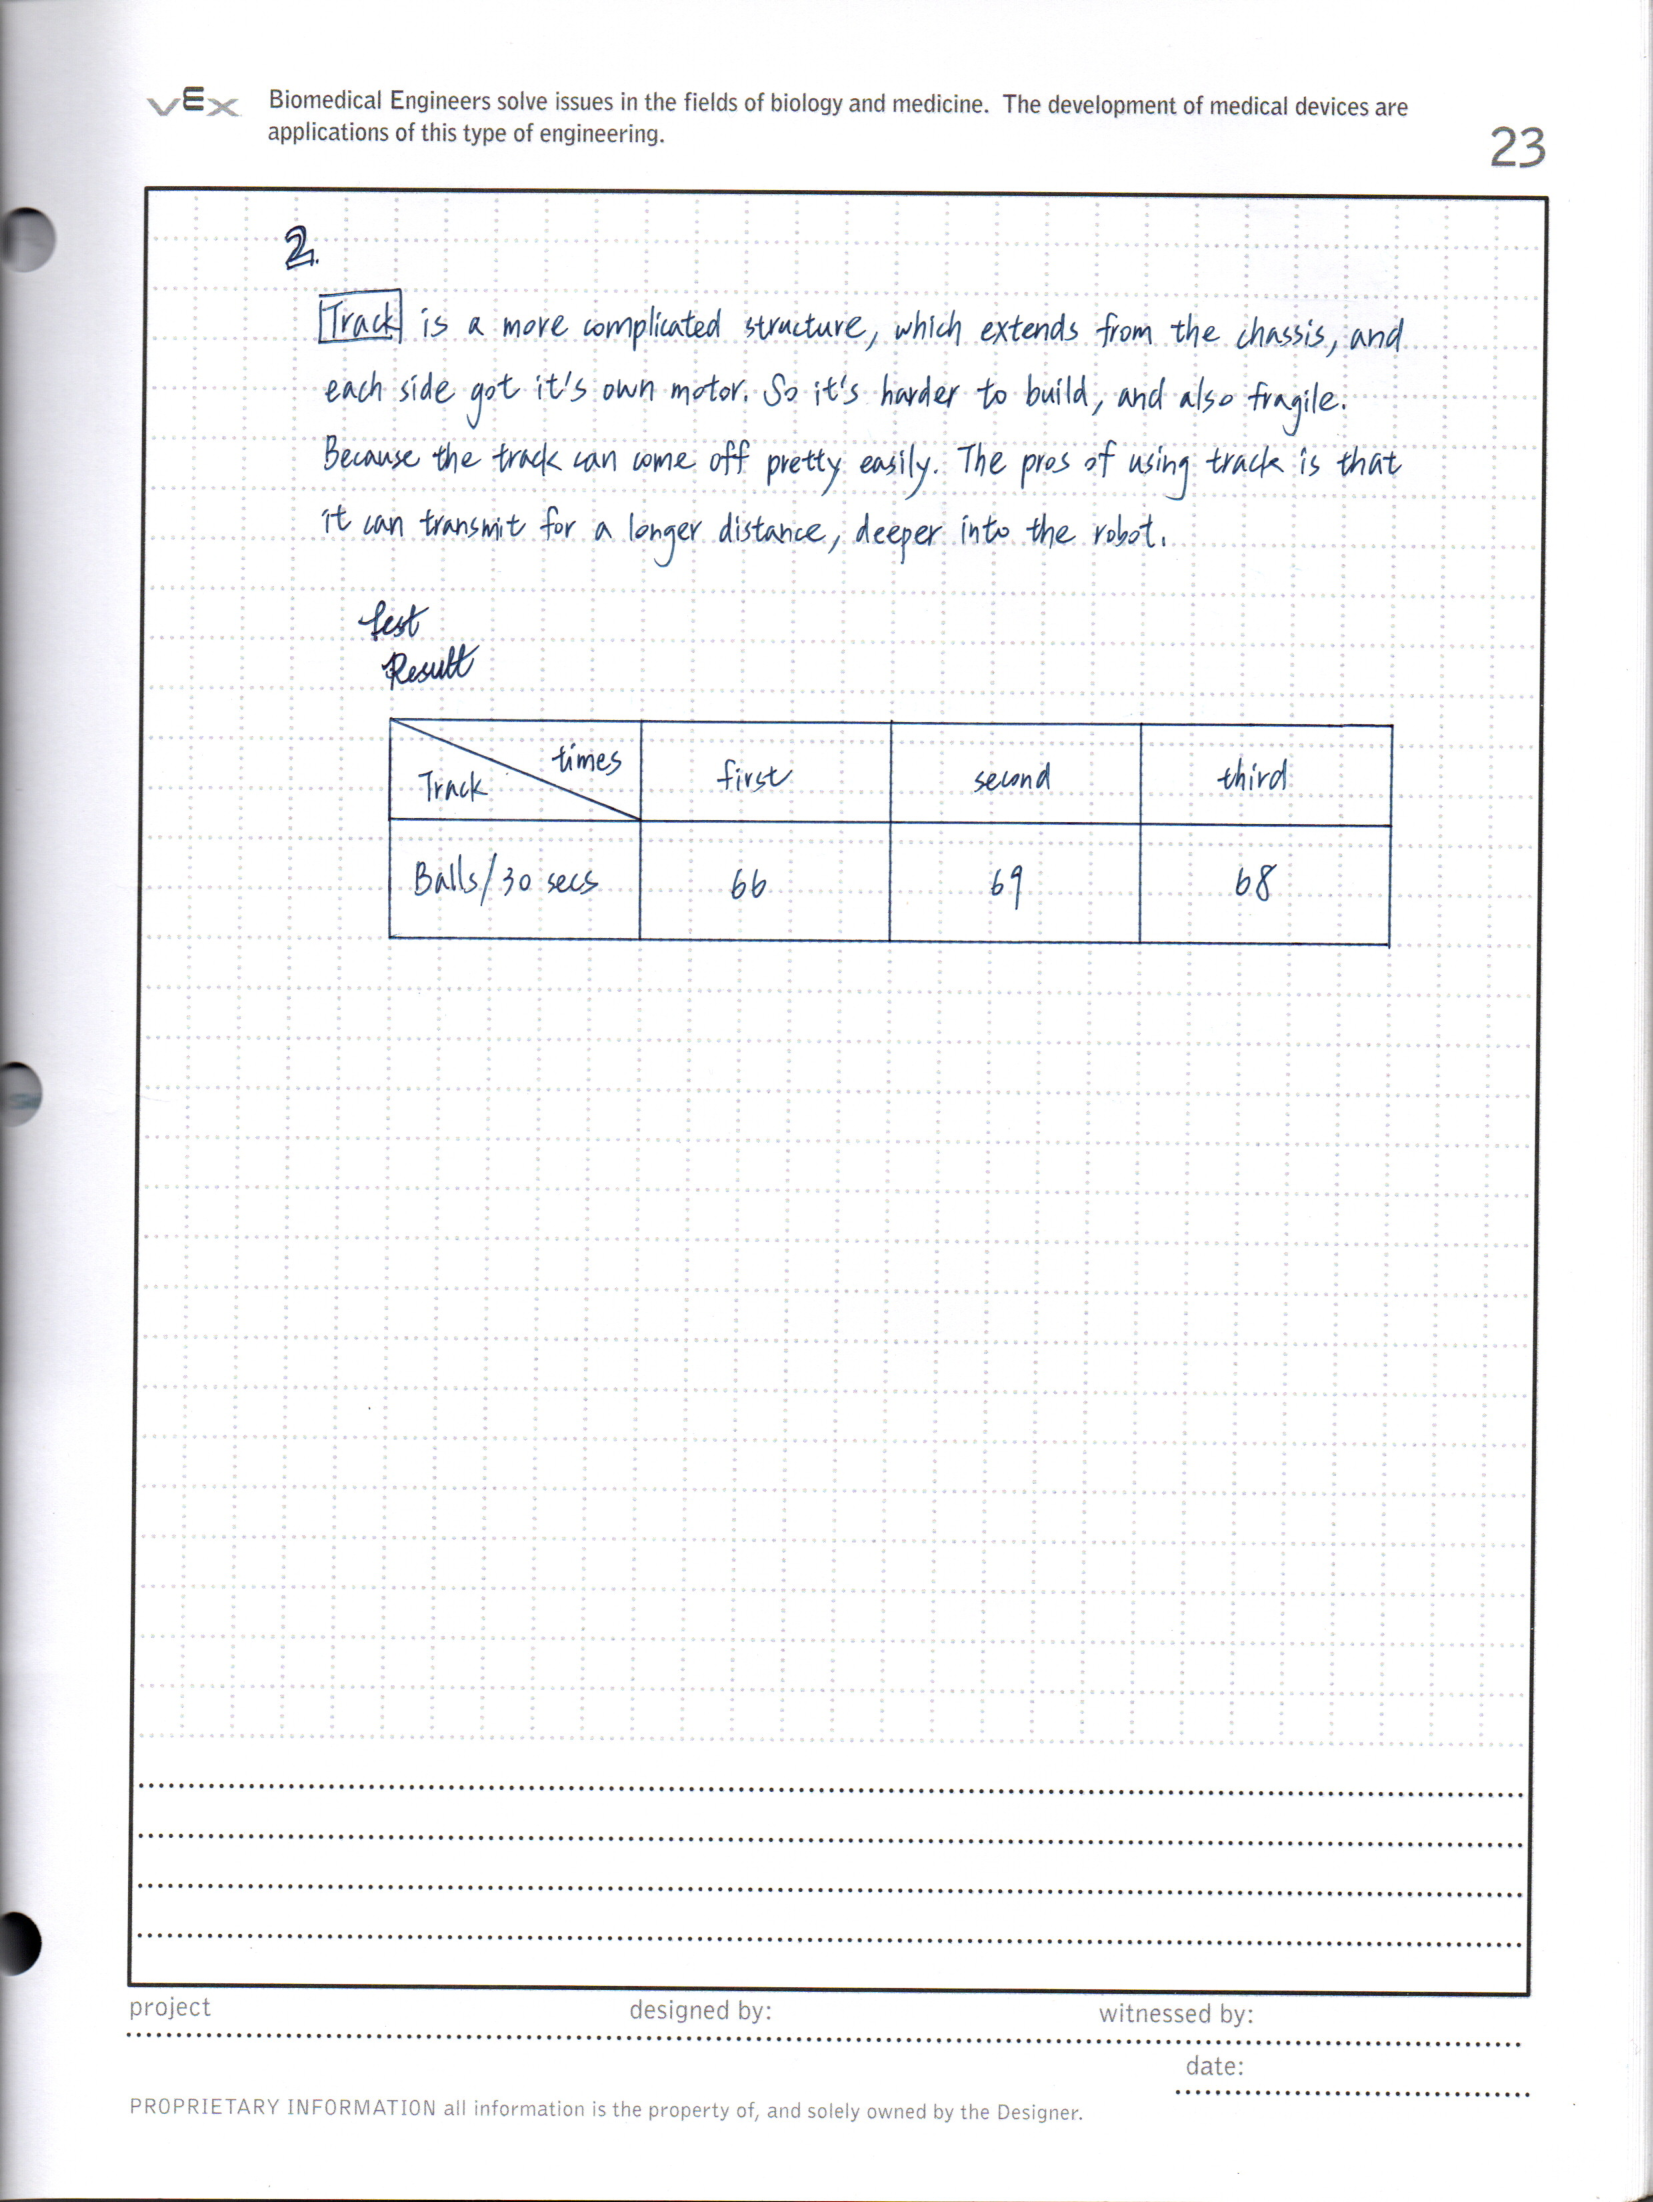 VEX Biomedical Engineers solve issues in the fields of biology and medicine. The development of medical devices are
applications of this type of engineering.
23
2.
Track is a more complicated structure, which extends from the chassis, and
each side got it's own motor. So it's harder to build, and also fragile.
Because the track can come off pretty easily. The pros of using track is that
it can transmit for a longer distance, deeper into the robot.
Test
Result
Track times first second third
Balls/30 secs 66 69 68
project designed by: witnessed by:
date:
PROPRIETARY INFORMATION all information is the property of, and solely owned by the Designer.